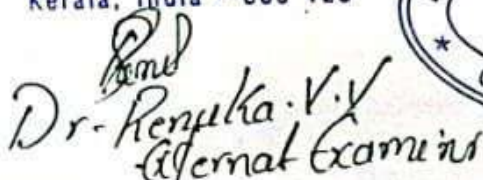 Kerala, India -
Dr- Renuka. V. V
External Examiner